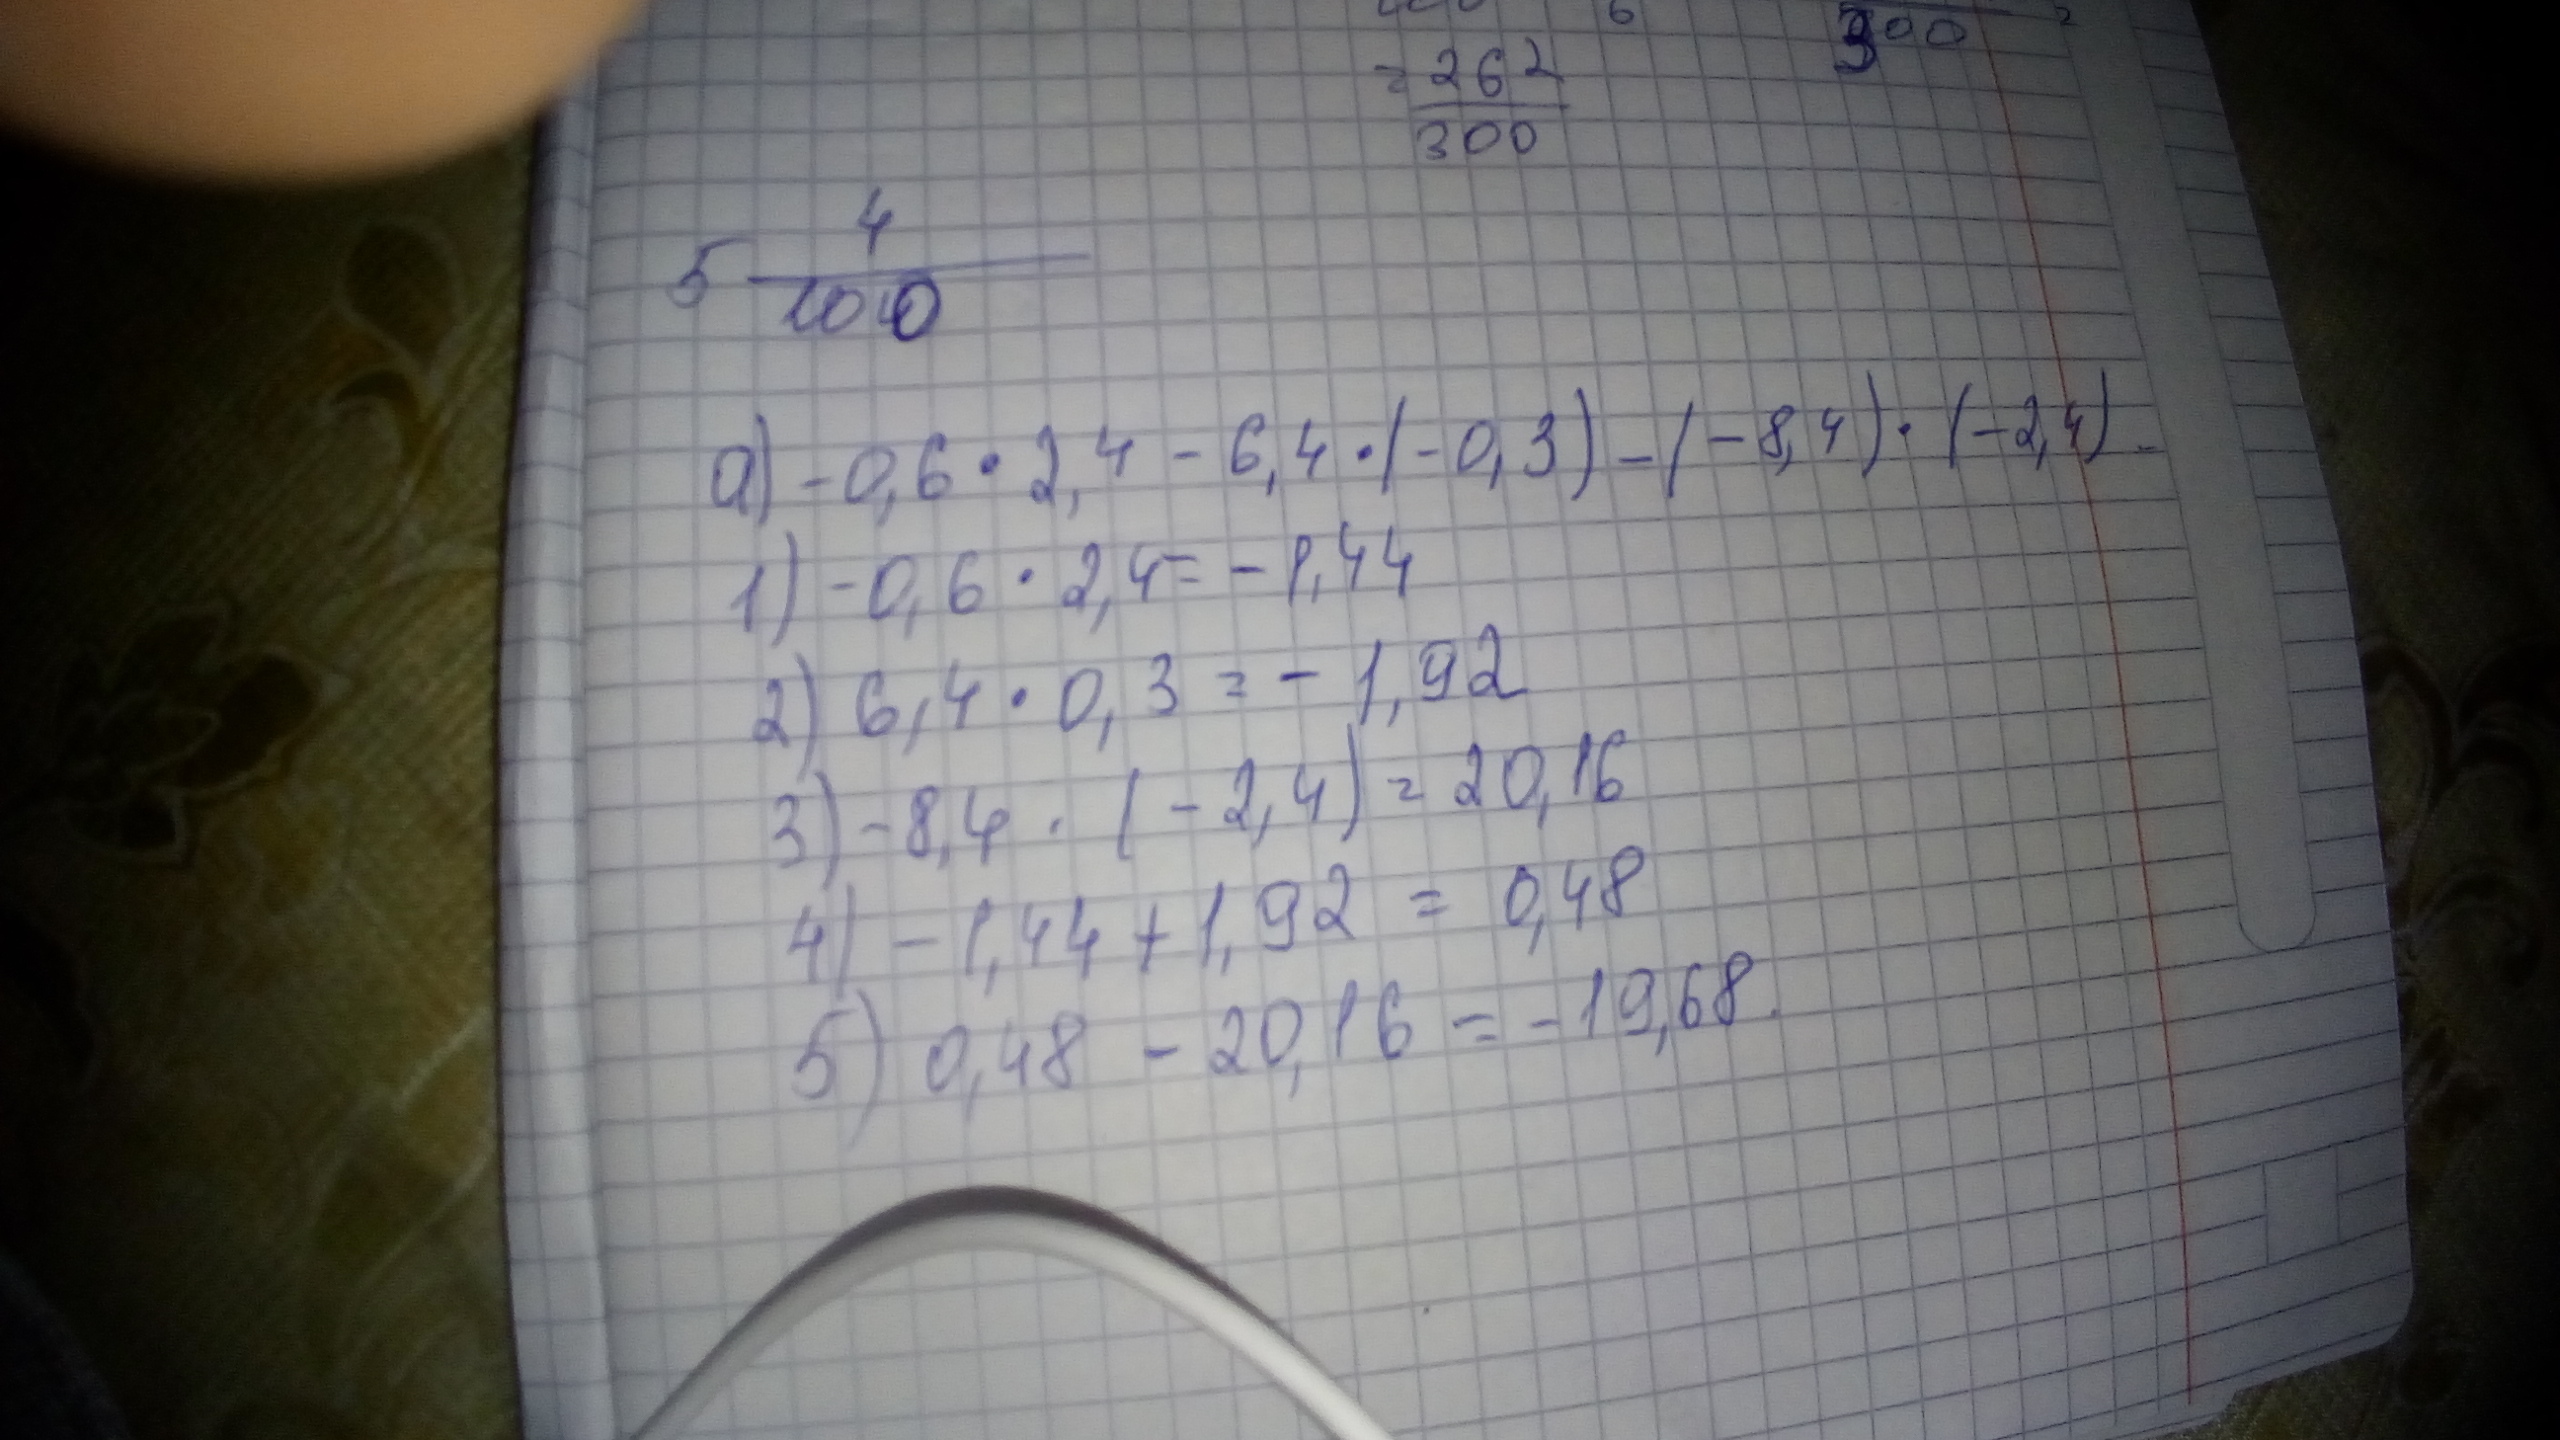 = 262
300
300
4
5
100
а) -0,6 · 2,4 - 6,4 · (-0,3) - (-8,4) · (-2,4) =
1) -0,6 · 2,4 = -1,44
2) 6,4 · 0,3 = - 1,92
3) -8,4 · (-2,4) = 20,16
4) -1,44 + 1,92 = 0,48
5) 0,48 - 20,16 = -19,68.